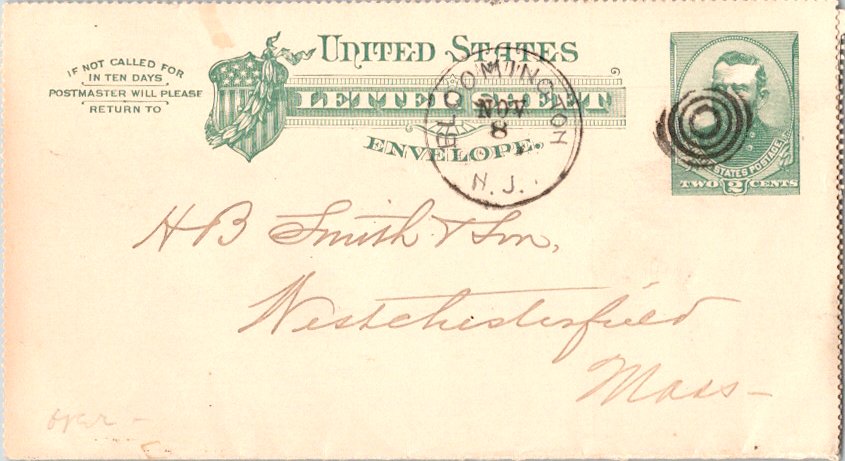 IF NOT CALLED FOR
IN TEN DAYS
POSTMASTER WILL PLEASE
RETURN TO
UNITED STATES
LETTER SHEET
ENVELOPE.
BLOOMINGTON
NOV
8
N. J.
STATES POSTAGE
TWO 2 CENTS
H B Smith & Son,
Westchesterfield
Mass-
over -